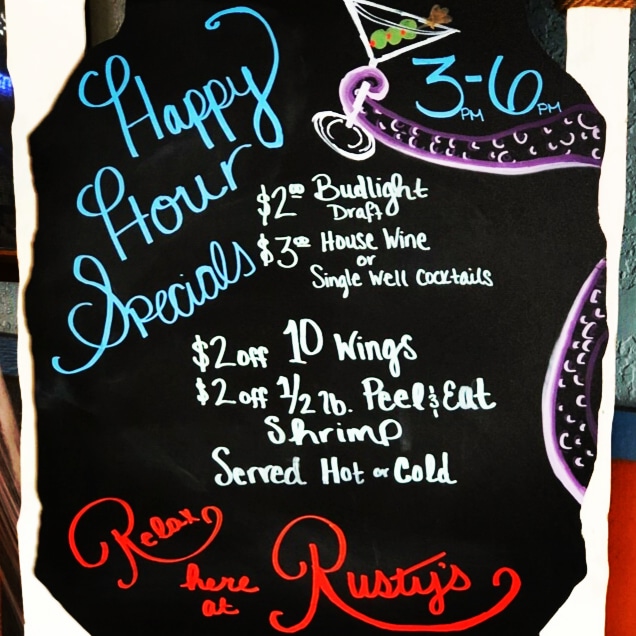 Happy
Hour
Specials
3-6
PM PM
$2.00 Budlight
Draft
$3.00 House Wine
or
Single Well Cocktails
$2 off 10 Wings
$2 off 1/2 lb. Peel & Eat
Shrimp
Served Hot or Cold
Relax
here
at
Rusty's